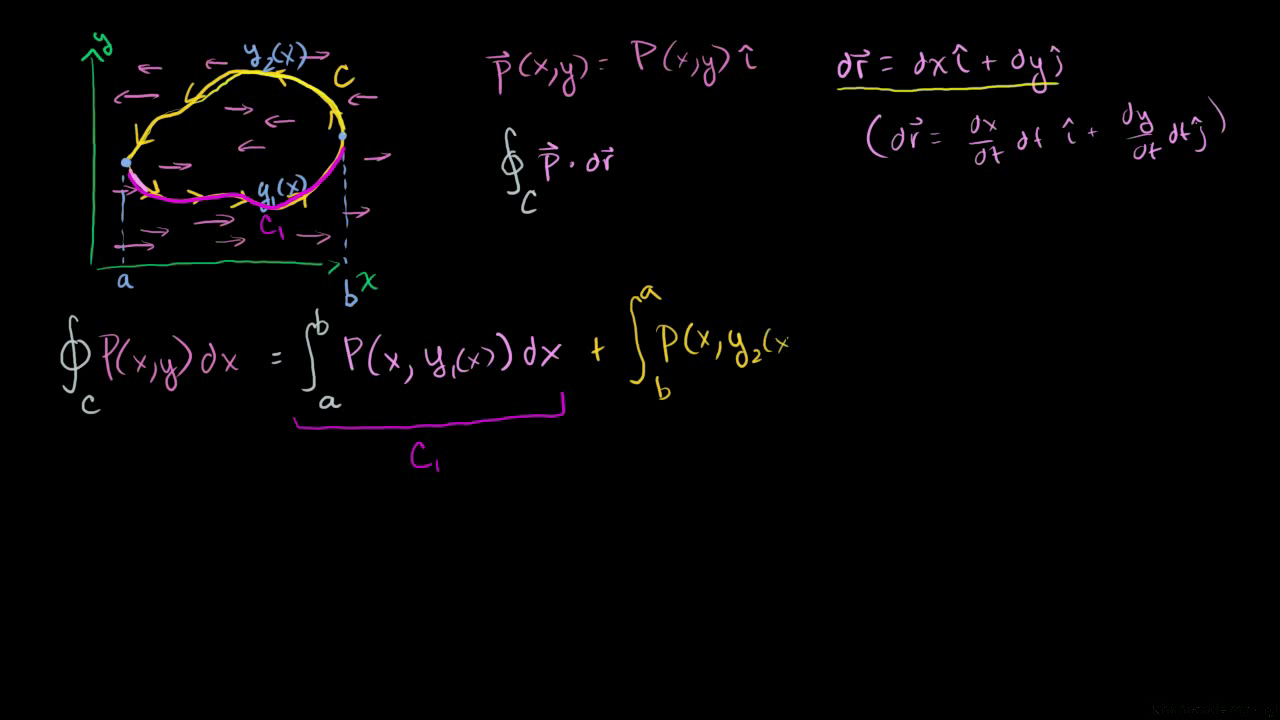 y
y₂(x)
C
y₁(x)
C₁
a
b
x
p⃗(x,y) = P(x,y) î
dr⃗ = dx î + dy ĵ
(dr⃗ = dx/dt dt î + dy/dt dt ĵ)
∮_C p⃗ · dr⃗
∮_C P(x,y) dx = ∫_a^b P(x, y₁(x)) dx + ∫_b^a P(x, y₂(x
C₁